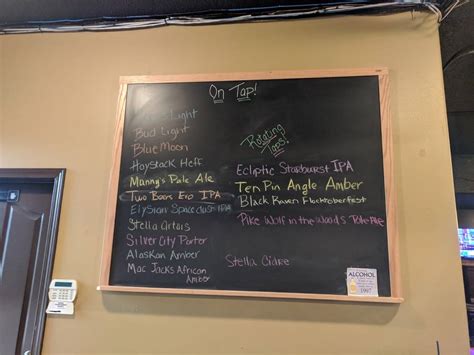 On Tap!
Light
Bud Light
Blue Moon
Haystack Heff
Manny's Pale Ale
Two Beers Evo IPA
Elysian Space dust IPA
Stella Artois
Silver City Porter
Alaskan Amber
Mac Jacks African
Amber
Rotating
Taps!
Ecliptic Starburst IPA
Ten Pin Angle Amber
Black Raven Flocktoberfest
Pike Wolf in the Woods
Stella Cidre
ALCOHOL
1997